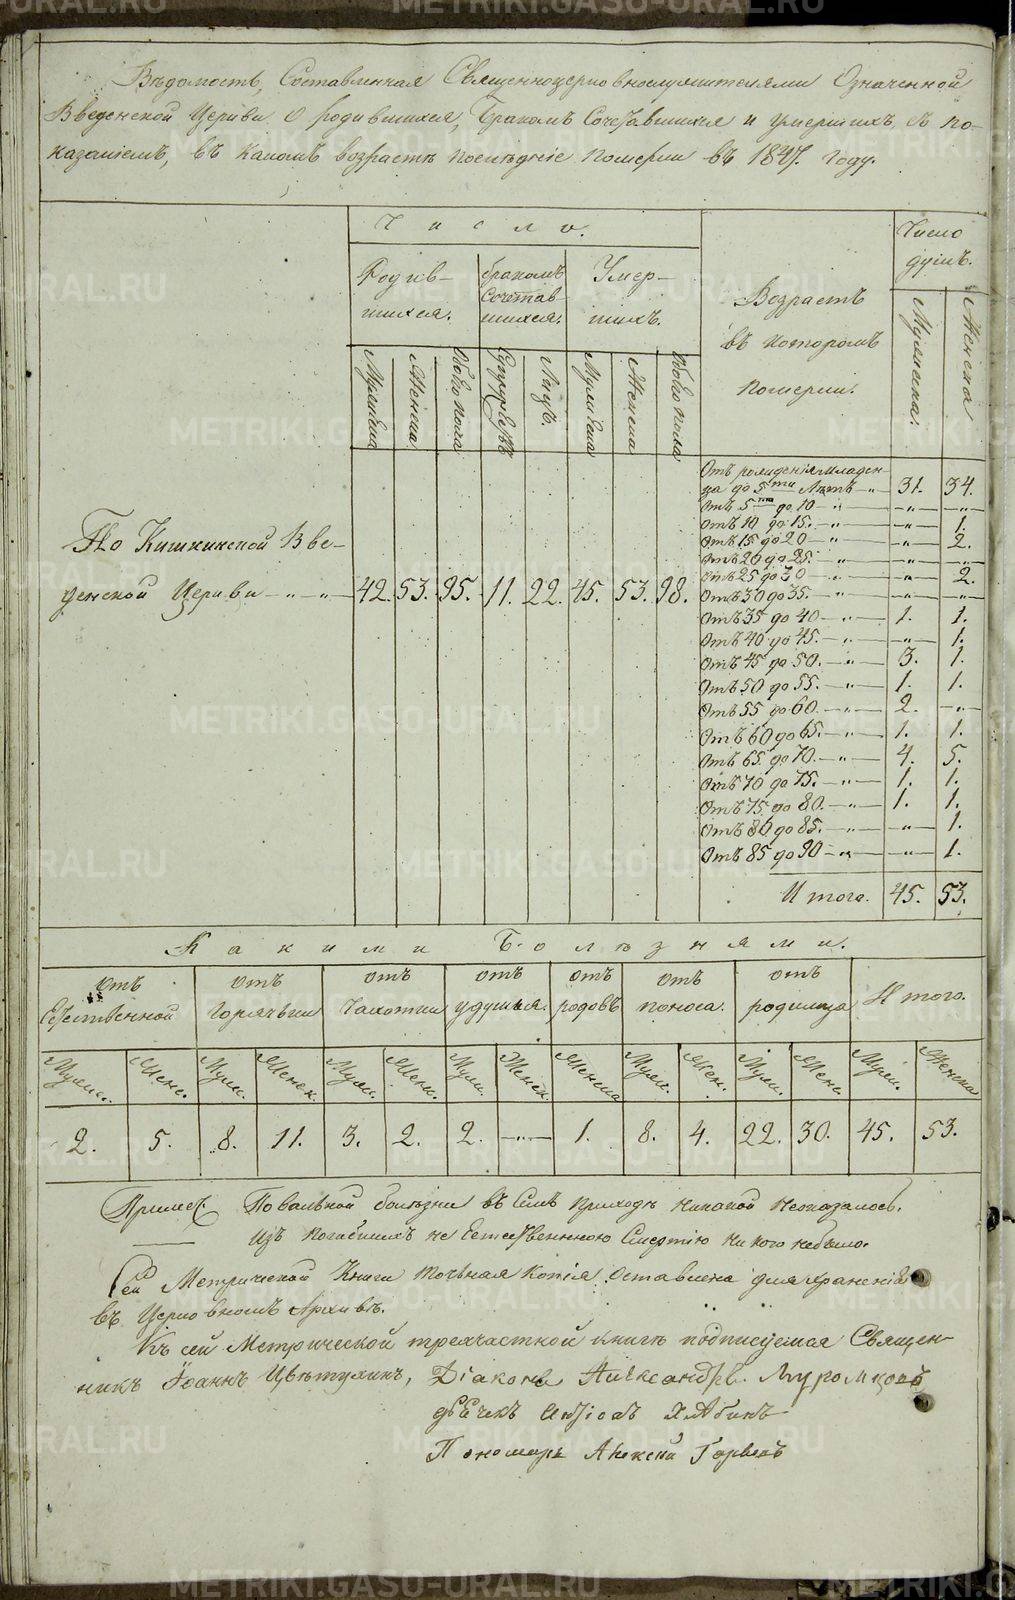 Вѣдомость, Составленная Священноцерковнослужителями Означенной
Введенской Церкви о родившихся, Бракомъ Сочетавшихся и умершихъ, съ по-
казаніемъ, въ какомъ возрастѣ послѣдніе померли въ 1847. году.
Число.
Число
душъ.
Родив-
шихся.
бракомъ
Сочетав-
шихся.
Умер-
шихъ.
Возрастъ
въ которомъ
померли.
Мужеска
Женска
Обоего пола
Супружествъ
Лицъ.
Мужеска
Женска
Обоего пола
Мужеска.
Женска
По Кишкинской Вве-
денской Церкви — „ — „ — 42. 53. 95. 11. 22. 45. 53. 98.
Отъ рожденія младен-
ца до 5ти Лѣтъ — „ — 31. 34.
Отъ 5ти до 10 — „ — — „ — — „ —
Отъ 10 до 15. — „ — — „ — 1.
Отъ 15 до 20 — „ — — „ — 2.
Отъ 20 до 25. — „ — — „ — — „ —
Отъ 25 до 30 — „ — — „ — 2.
Отъ 30 до 35. — „ — — „ — — „ —
Отъ 35 до 40 — „ — 1. 1.
Отъ 40 до 45. — „ — — „ — 1.
Отъ 45 до 50. — „ — 3. 1.
Отъ 50 до 55. — „ — 1. 1.
Отъ 55 до 60. — „ — 2. — „ —
Отъ 60 до 65. — „ — 1. 1.
Отъ 65 до 70. — „ — 4. 5.
Отъ 70 до 75. — „ — 1. 1.
Отъ 75 до 80. — „ — 1. 1.
Отъ 80 до 85. — „ — — „ — 1.
Отъ 85 до 90 — „ — — „ — 1.
Итого. 45. 53.
Какими Болѣзнями.
Отъ Естественной
отъ Горячьки
отъ Чахотки
отъ удушья.
отъ родовъ
отъ поноса.
отъ родимца
Итого.
Муж. Женс. Муж. Женск. Муж. Женс. Муж. Женск. Женска Муж. Жен. Муж. Женс. Муж. Женска
2. 5. 8. 11. 3. 2. 2. — „ — 1. 8. 4. 22. 30. 45. 53.
Примѣч. Повальной болѣзни въ Семъ приходѣ никакой неоказалось.
изъ погибшихъ не Естественною Смертію никого небыло.
Сей Метрической Книги точьная копія оставлена для храненія
въ Церковномъ Архивѣ.
Къ сей Метрической трехчастной книгѣ подписуемся Священ-
никъ Іоаннъ Цвѣтухинъ, Діаконъ Александръ Муромцовъ
дьячекъ
Пономарь Алексѣй
METRIKI.GASO-URAL.RU